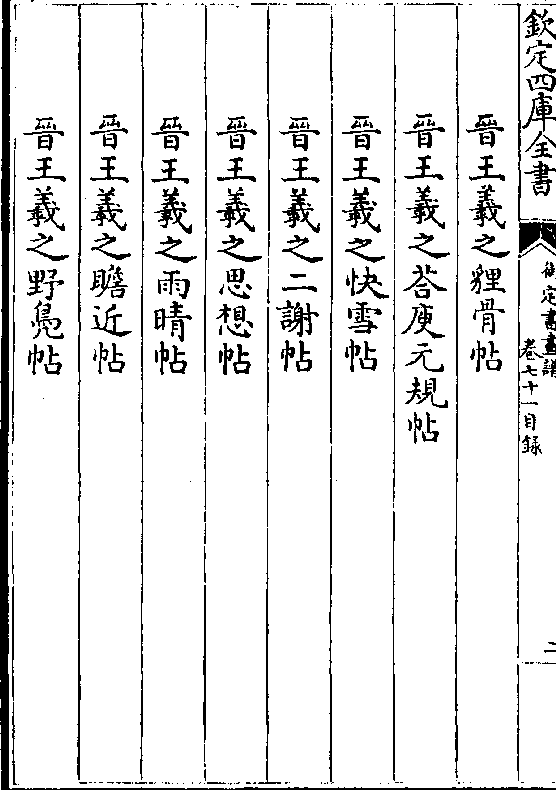 欽定四庫全書
御定書畫譜
卷七十一目録
二
晉王羲之貍骨帖
晉王羲之荅庾元規帖
晉王羲之快雪帖
晉王羲之二謝帖
晉王羲之思想帖
晉王羲之雨晴帖
晉王羲之瞻近帖
晉王羲之野鳧帖